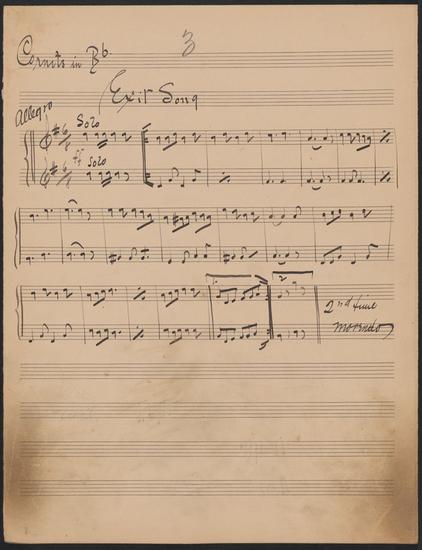 Cornets in Bb.
3
Exit Song
Allegro
Solo
ff
Solo
1.
2.
2nd time
morendo